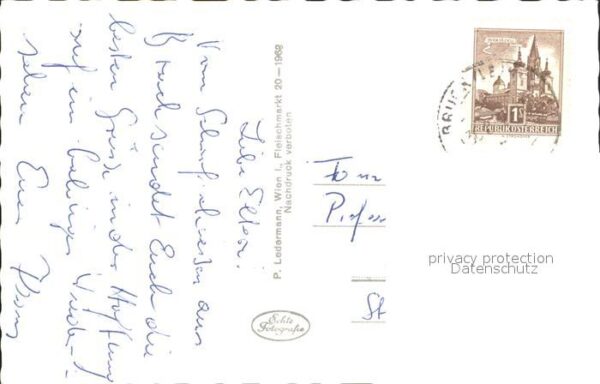 Liebe Eltern!
Vom Scharfschiessen aus
Bruck sendet Euch die
besten Grüsse in der Hoffnung
auf ein baldiges Wieder-
sehen Euer
P. Ledermann, Wien I., Fleischmarkt 20 — 1968
Nachdruck verboten
Echte
Fotografie
MARIAZELL
1S
REPUBLIK ÖSTERREICH
BRUCK
Profes
St
privacy protection
Datenschutz